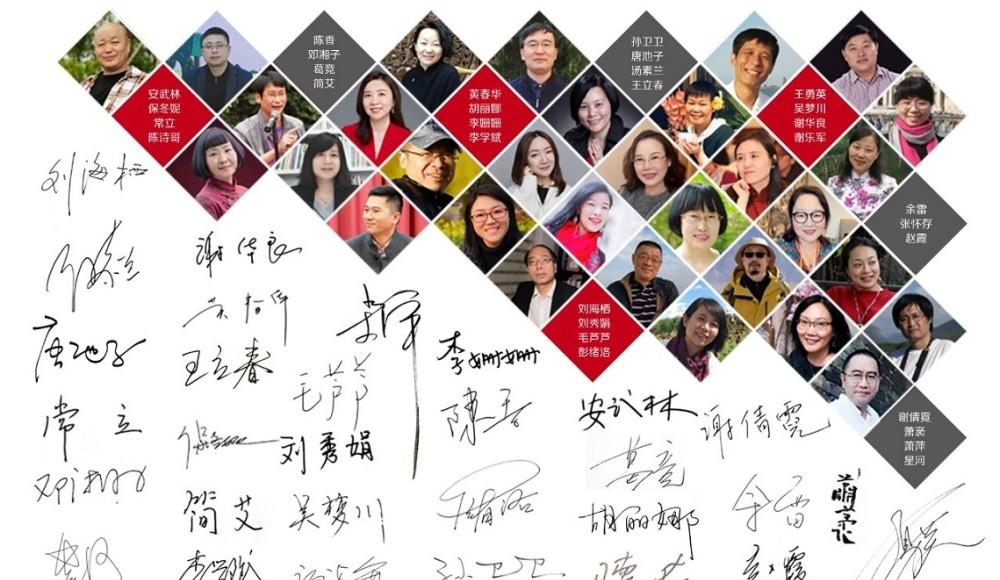 陈香
邓湘子
葛竞
简艾
孙卫卫
唐池子
汤素兰
王立春
安武林
保冬妮
常立
陈诗哥
黄春华
胡丽娜
李姗姗
李学斌
王勇英
吴梦川
谢华良
谢乐军
余雷
张怀存
赵霞
刘海栖
刘秀娟
毛芦芦
彭绪洛
谢倩霓
萧袤
萧萍
星河
刘海栖
谢华良
唐池子
王立春
毛芦芦
李姗姗
陈香
安武林
谢倩霓
常立
刘秀娟
葛竞
邓湘子
简艾
吴梦川
彭绪洛
胡丽娜
余雷
李学斌
孙卫卫
赵霞